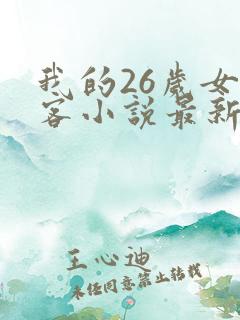 我的26岁女
客小说最新
王心迪
未经同意禁止转载